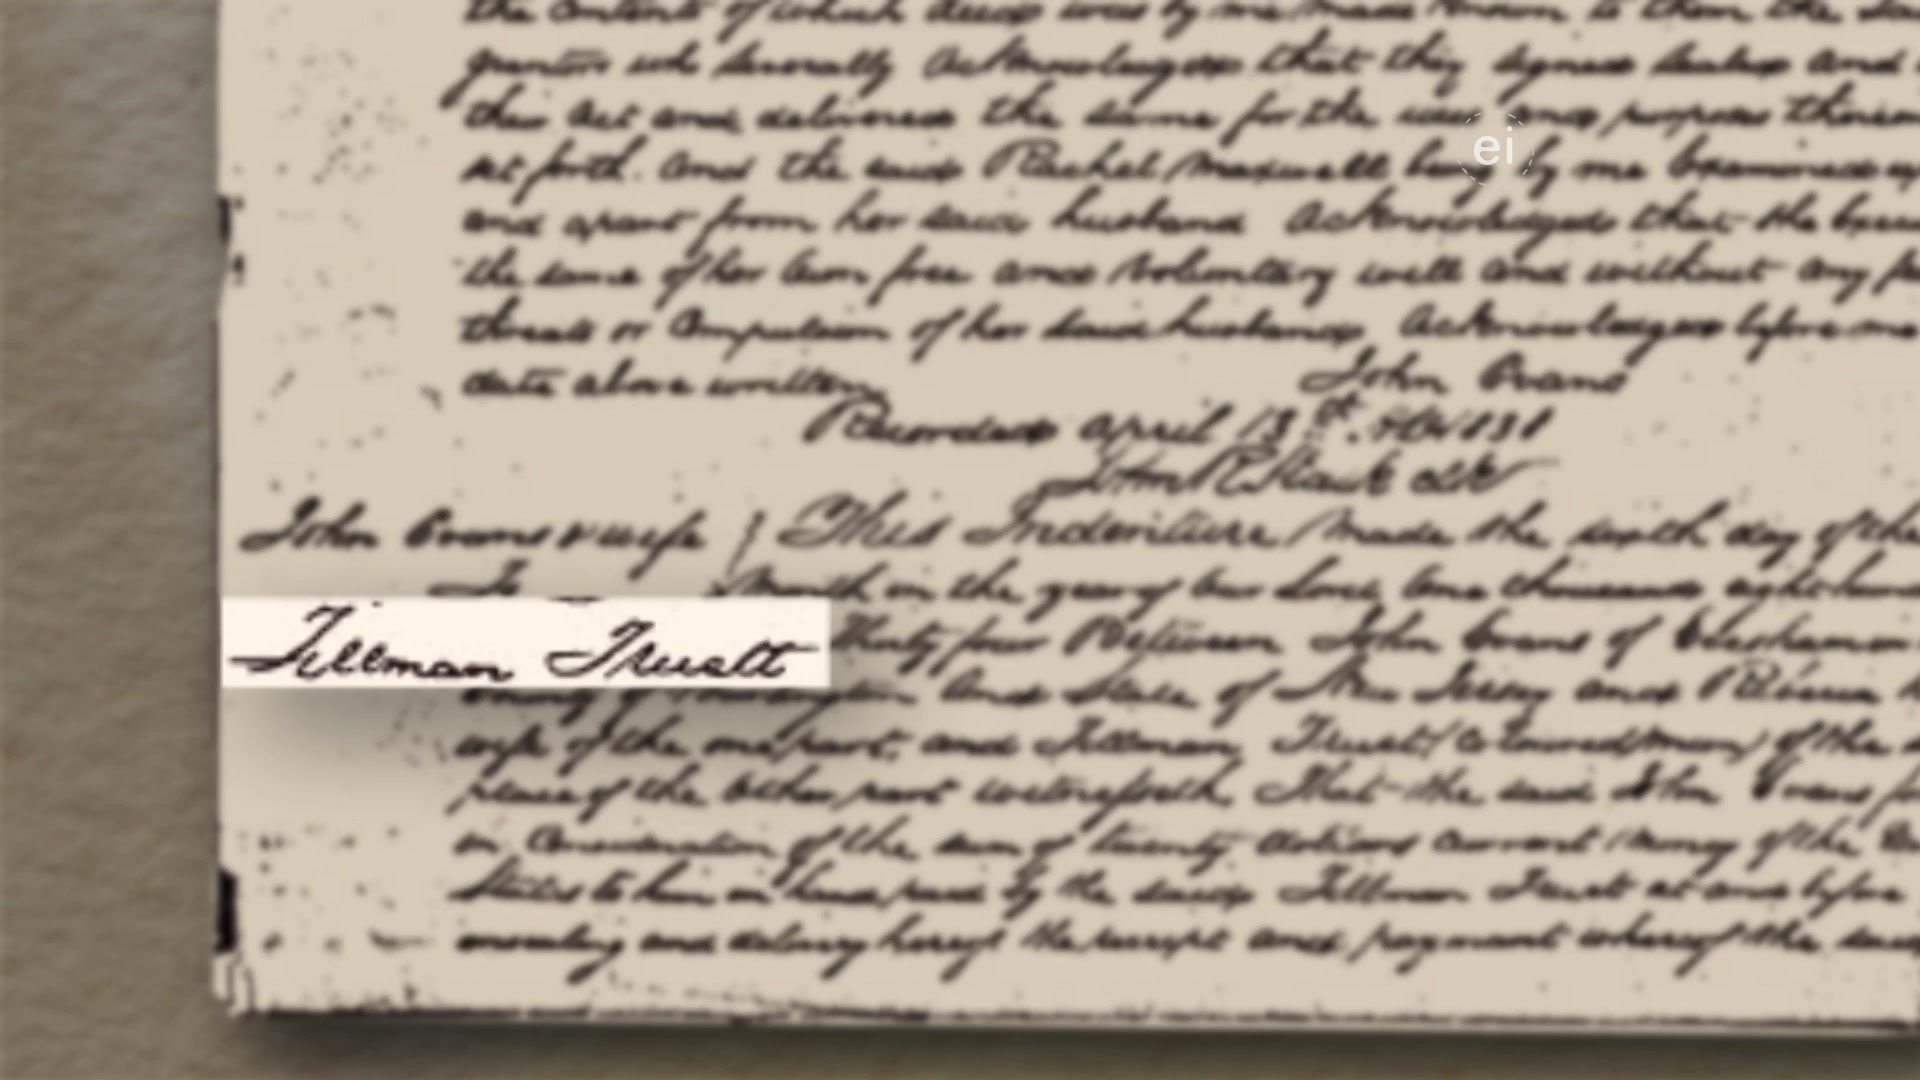 the contents of which deed was by me made known to them the
grantors who severally acknowledged that they signed sealed and
their act and delivered the same for the uses and purposes therein
ei
set forth. and the said Rachel Maxwell being by me examined
and apart from her said husband acknowledged that she
the same of her own free and voluntary will and without any
threats or Compulsion of her said husband, acknowledged before me
date above written
John Evans
Recorded april 13th. AD 1831
John Evans & wife } This Indenture Made the sixth day of the
To
Month in the year of our Lord one thousand eight
Tillman Truett
Thirty four Between John Evans of
and State of New Jersey and
wife of the one part, and Tillman Truett (Coloured man) of the
place of the other part witnesseth, That the said John Evans
in Consideration of the sum of twenty dollars current money of the
States to him in hand paid by the said Tillman Truett at and before
ensealing and delivery hereof the receipt and payment whereof the